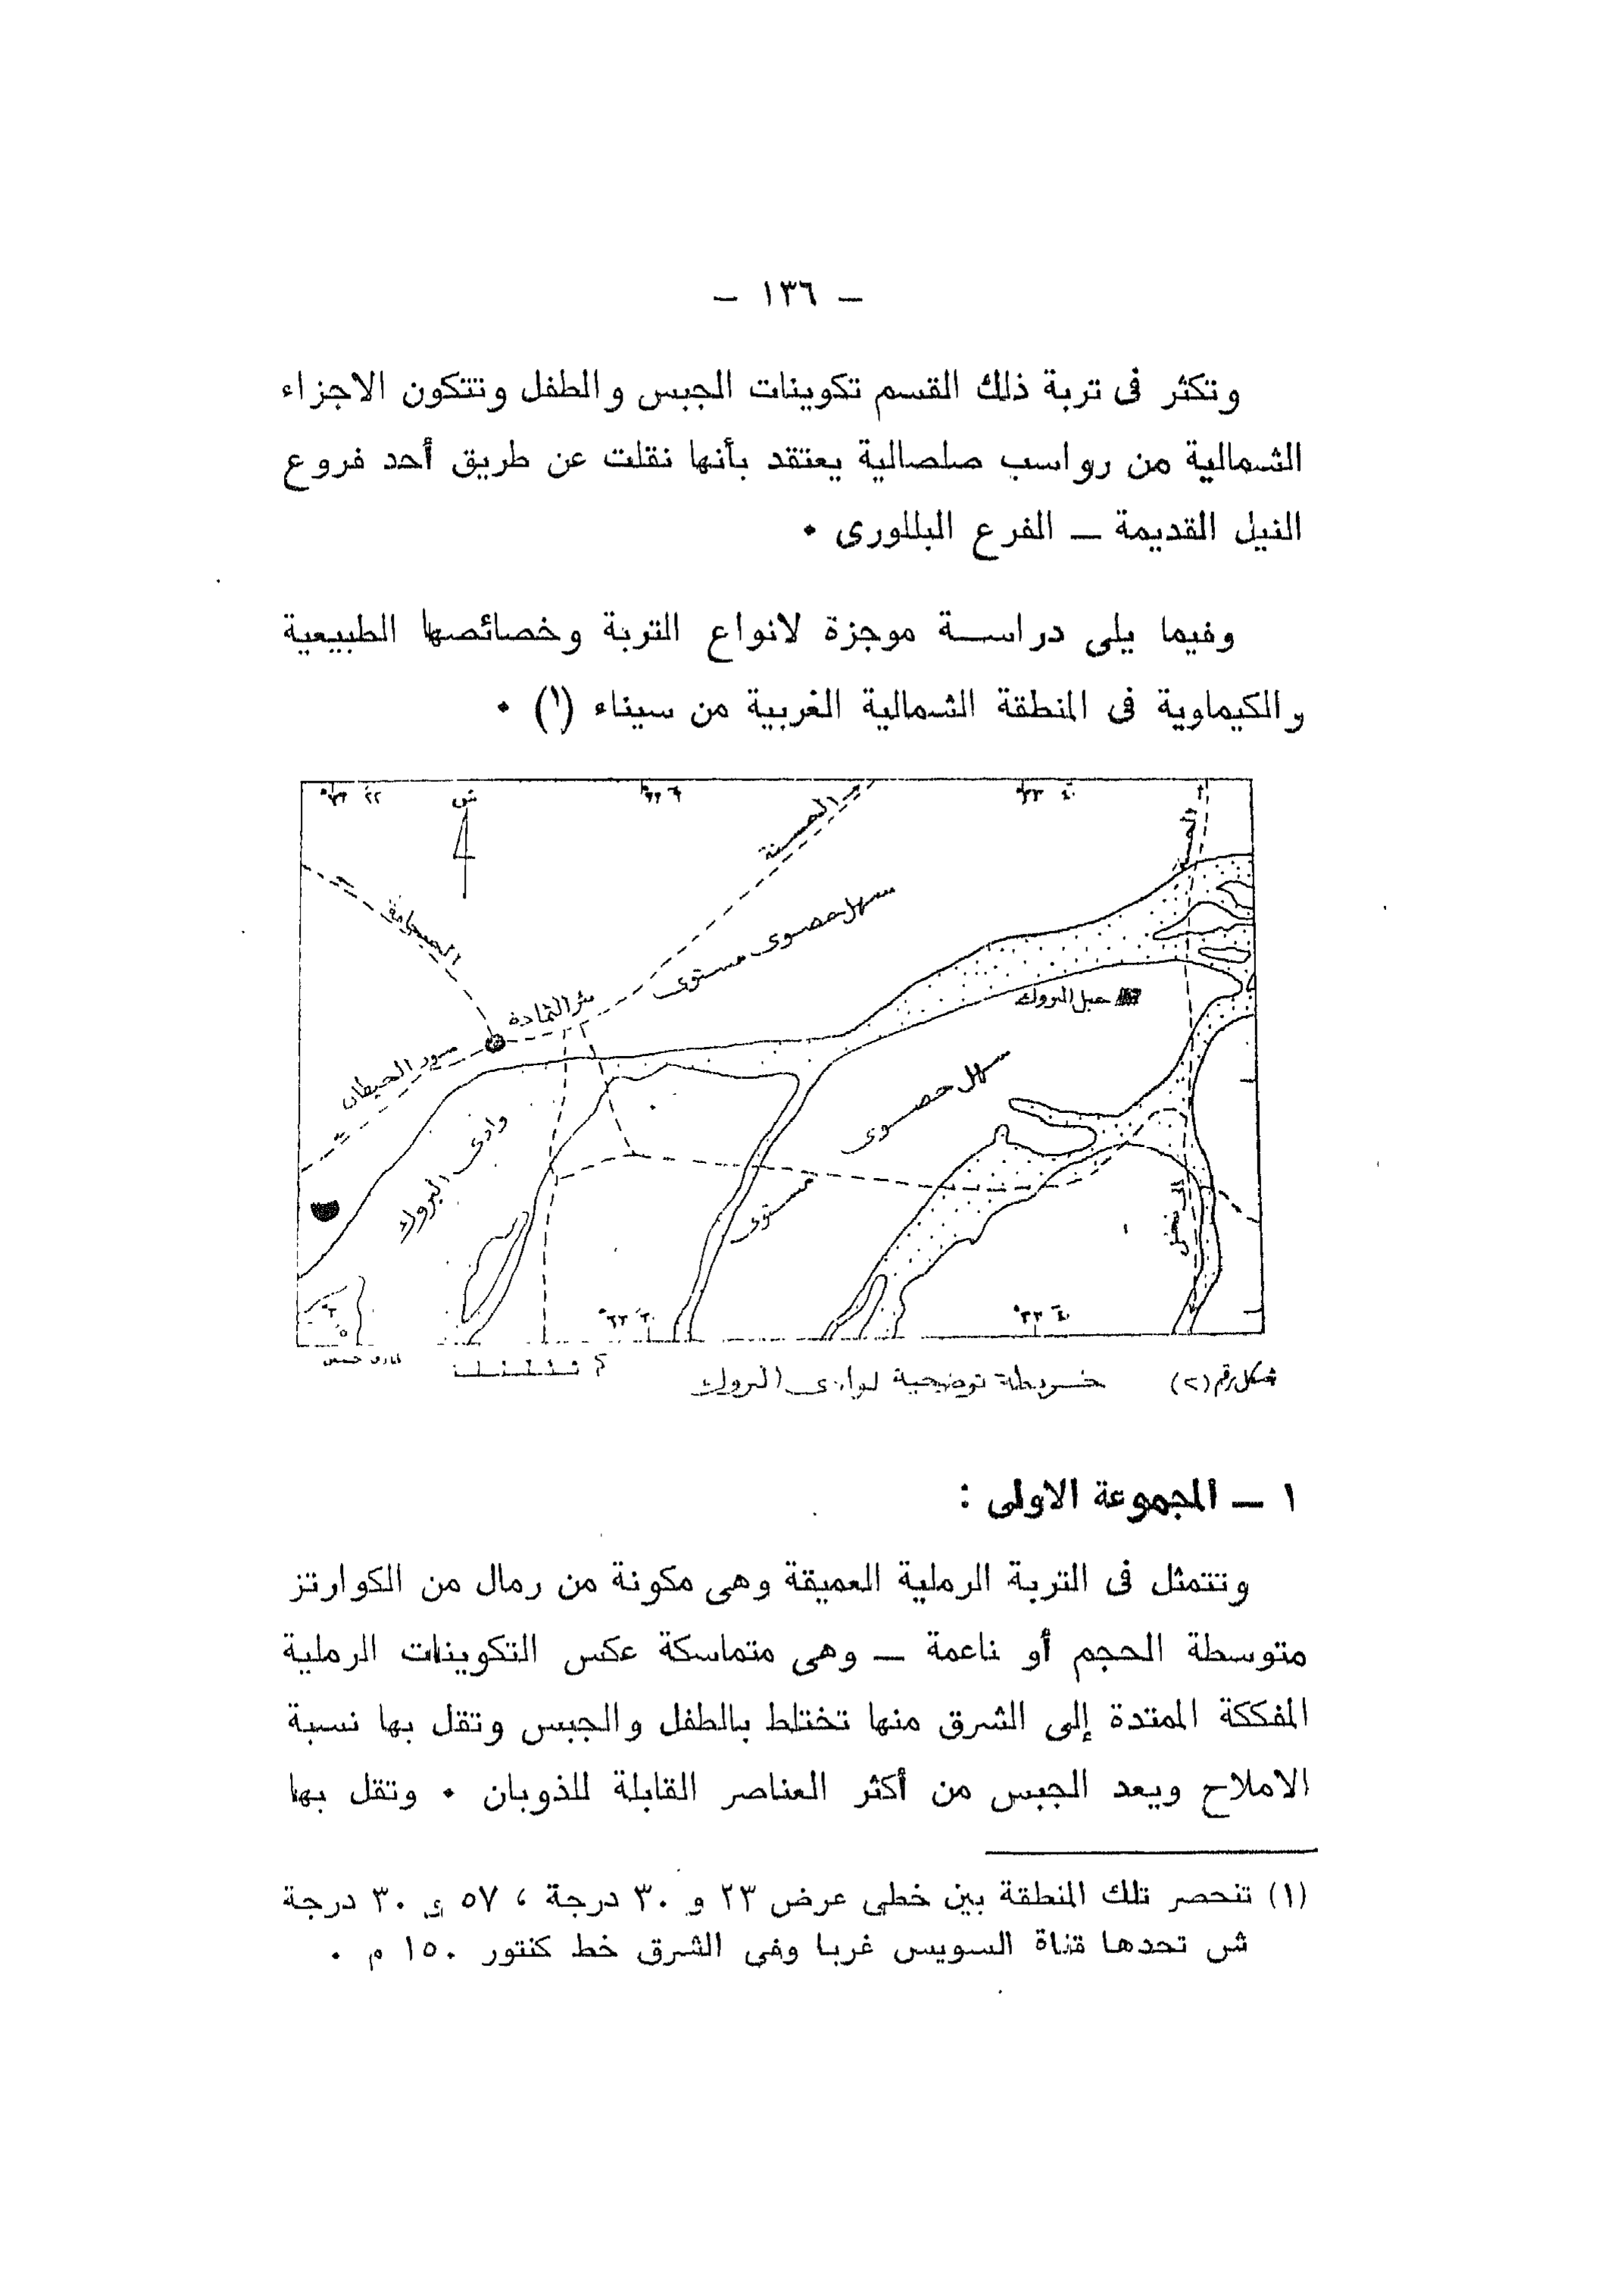 — ١٣٦ —
وتكثر فى تربة ذلك القسم تكوينات الجبس والطفل وتتكون الاجزاء
الشمالية من رواسب صلصالية يعتقد بأنها نقلت عن طريق أحد فروع
النيل القديمة — الفرع البللورى •
وفيما يلى دراسة موجزة لانواع التربة وخصائصها الطبيعية
والكيماوية فى المنطقة الشمالية الغربية من سيناء (١) •
ش
الحسنة
سهل حصوى مستوى
جبل البروك
سهل حصوى
مستوى
وادى البروك
شكل رقم (٢) خريطة توضحية لوادى البروك
١ — المجموعة الاولى :
وتتمثل فى التربة الرملية العميقة وهى مكونة من رمال من الكوارتز
متوسطة الحجم أو ناعمة — وهى متماسكة عكس التكوينات الرملية
المفككة الممتدة إلى الشرق منها تختلط بالطفل والجبس وتقل بها نسبة
الاملاح ويعد الجبس من أكثر العناصر القابلة للذوبان • وتقل بها
(١) تنحصر تلك المنطقة بين خطى عرض ٢٣ و ٣٠ درجة ، ٥٧ و ٣٠ درجة
ش تحدها قناة السويس غربا وفى الشرق خط كنتور ١٥٠ م .